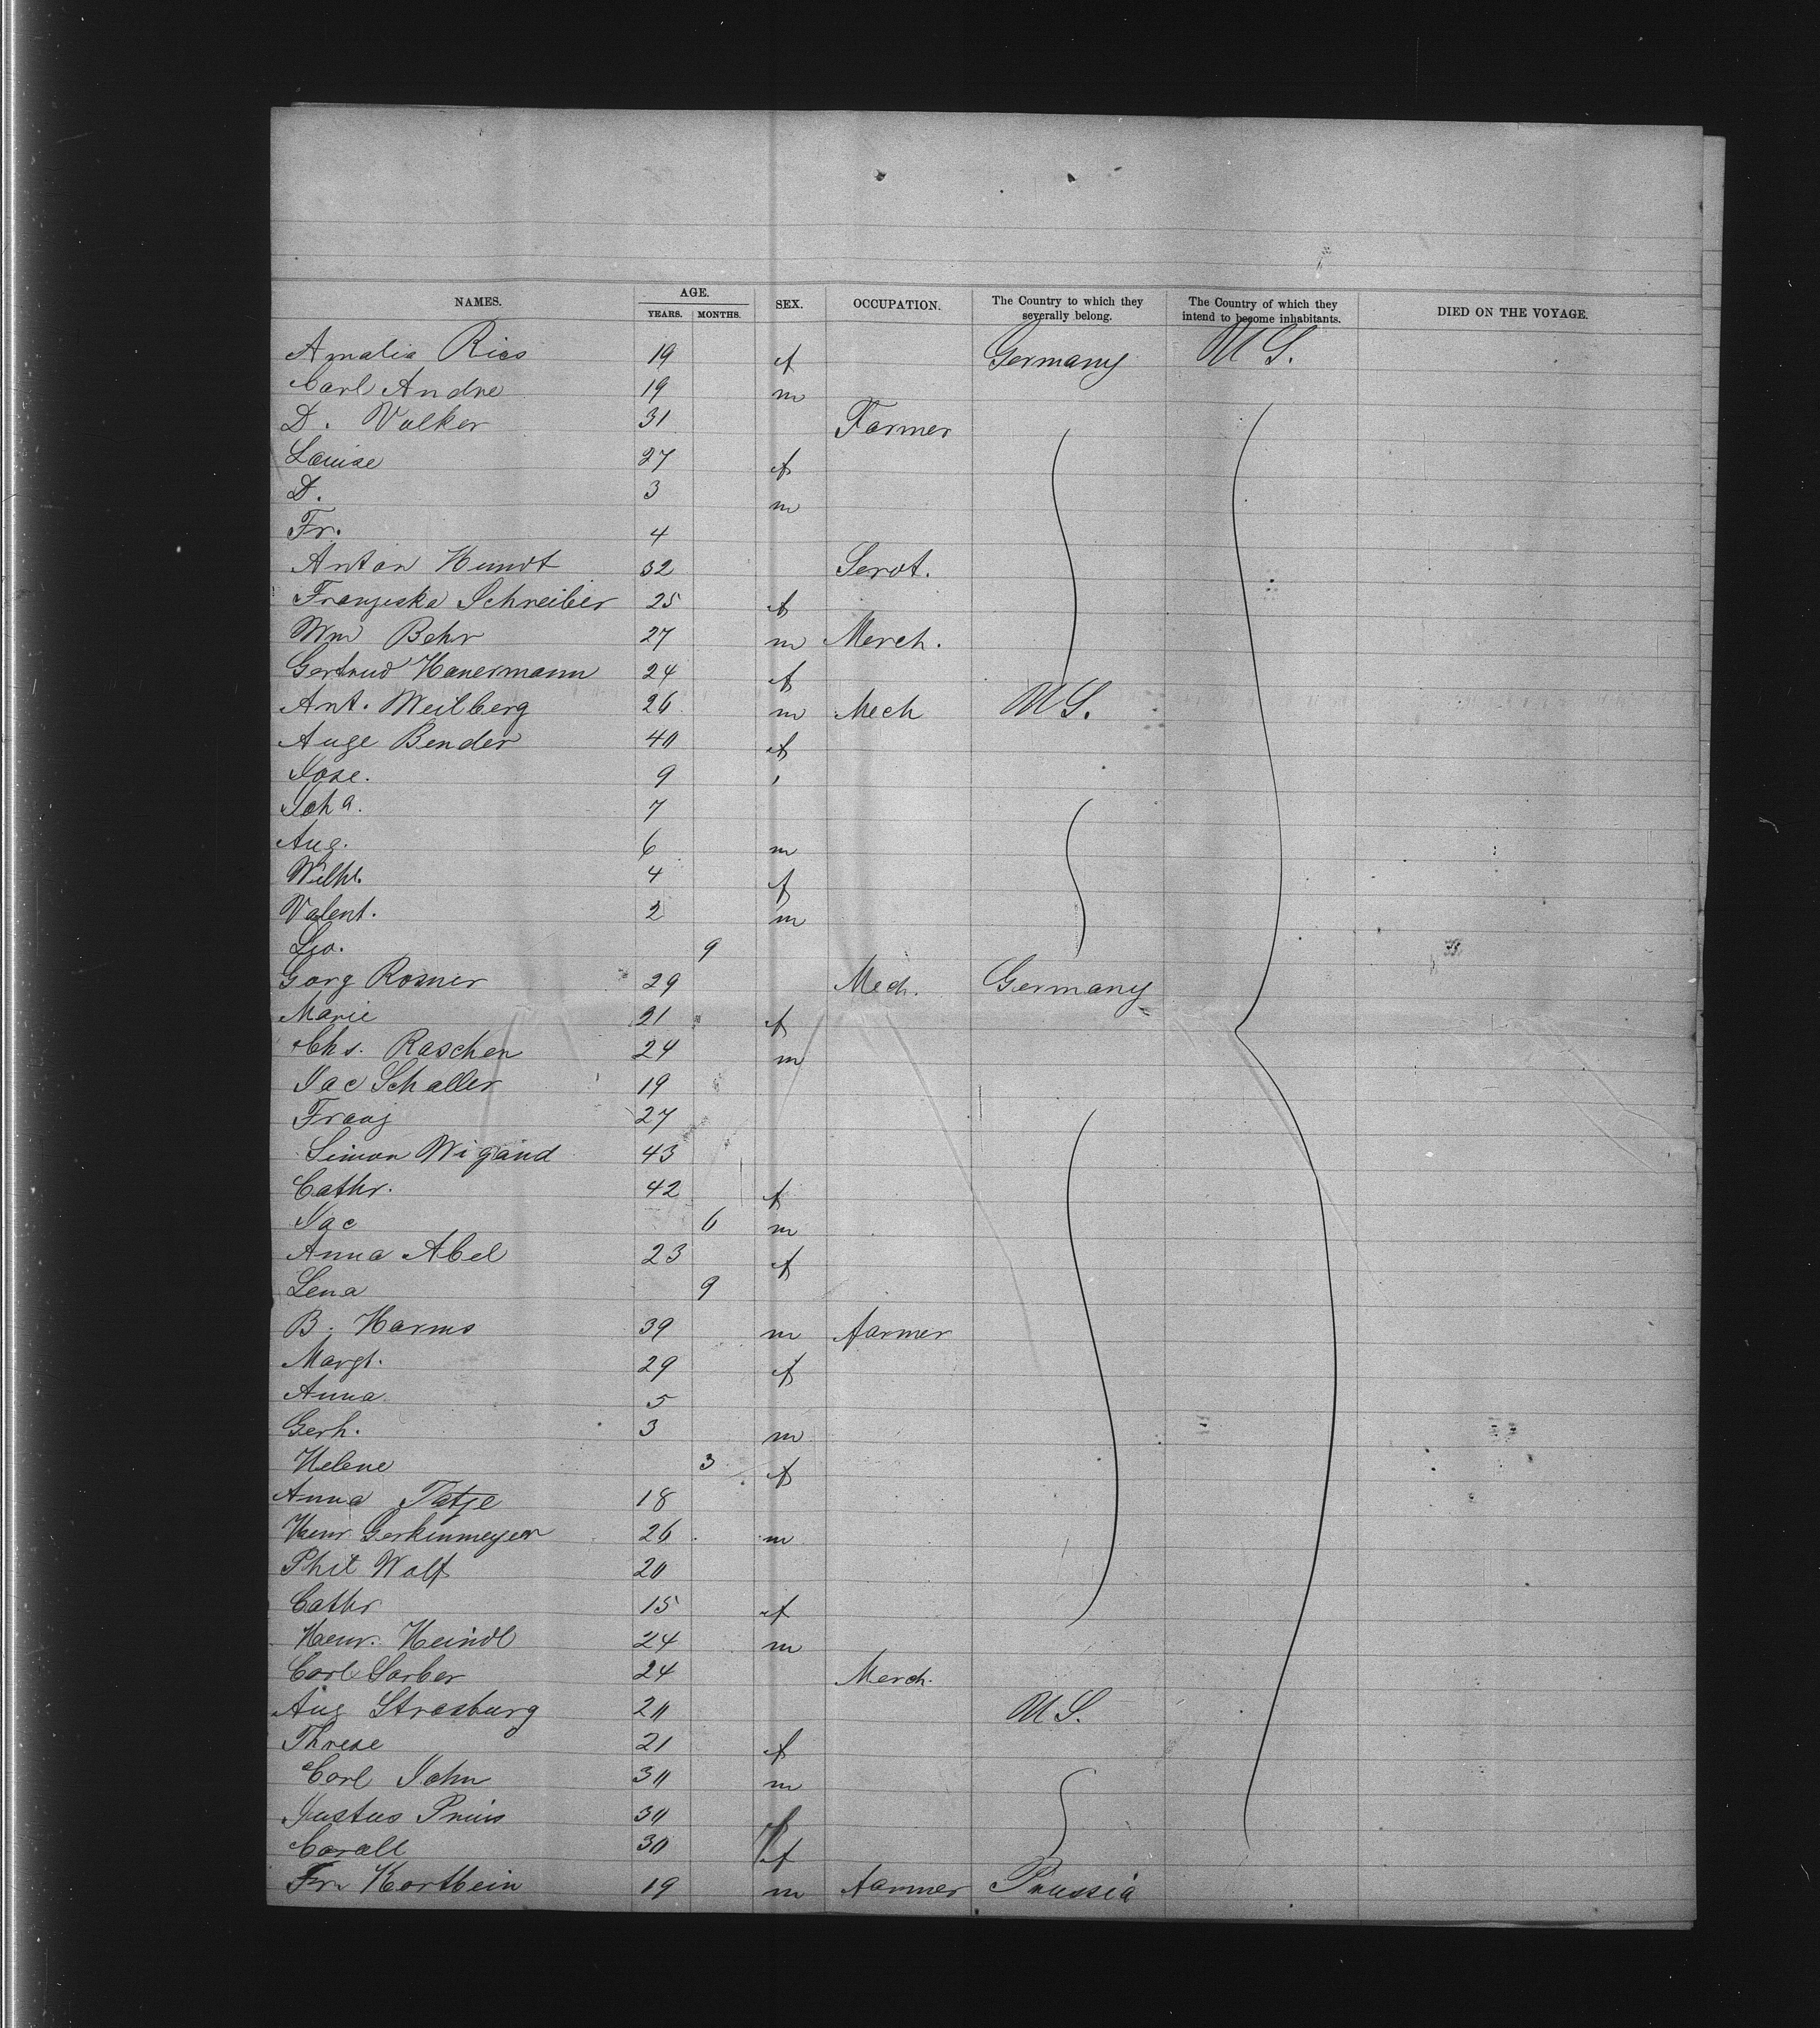 NAMES. AGE. SEX. OCCUPATION. The Country to which they severally belong. The Country of which they intend to become inhabitants. DIED ON THE VOYAGE.
YEARS. MONTHS.
Amalia Ries 19 f Germany U S.
Carl Andre 19 m
D. Volker 31 Farmer
Louise 27 f
D. 3 m
Fr. 4
Anton Hundt 32 Servt.
Franziska Schreiber 25 f
Wm Behr 27 m Merch.
Gertrud Hanermann 24 f
Ant. Meilberg 26 m Mech U S.
Auge Bender 40 f
Jose. 9 "
Joha. 7
Aug. 6 m
Wilhl. 4 f
Valent. 2 m
Leo. 9
Gorg Rosner 29 Mech. Germany
Marie 21 f
Chs. Raschen 24 m
Jac Schaller 19
Franz 27
Simon Wigand 43
Cathr. 42 f
Jac 6 m
Anna Abel 23 f
Lena 9
B. Harms 39 m farmer
Margt. 29 f
Anna 5
Gerh. 3 m
Helene 3 f
Anna Tatje 18
Henr Gerkenmeyer 26 m
Phil Wolf 20
Cathr 15 f
Henr. Heindl 24 m
Carl Sarber 24 Merch.
Aug Strasburg 20 U S.
Threse 21 f
Carl John 30 m
Justus Pruis 30
Corall 30 f
Fr. Kortbein 19 m farmer Prussia